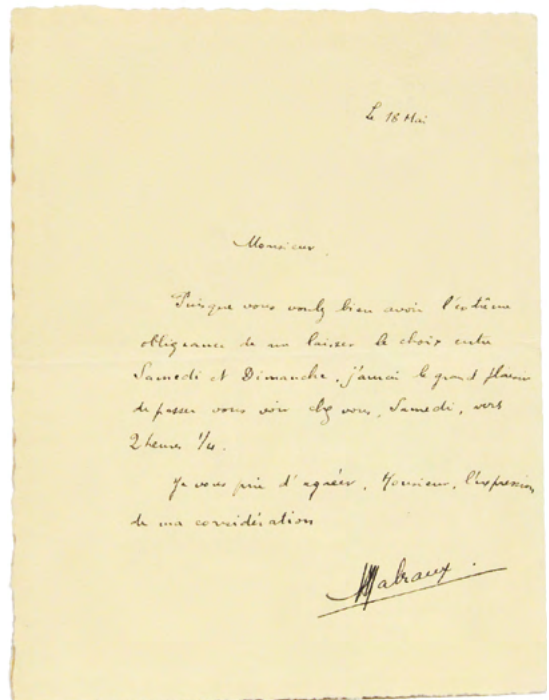 Le 18 Mai
Monsieur.
Puisque vous voulez bien avoir l'extrême
obligeance de me laisser le choix entre
Samedi et Dimanche, j'aurai le grand plaisir
de passer vous voir chez vous, Samedi, vers
2 heures 1/4.
Je vous prie d'agréer, Monsieur, l'expression
de ma considération
AMalraux.